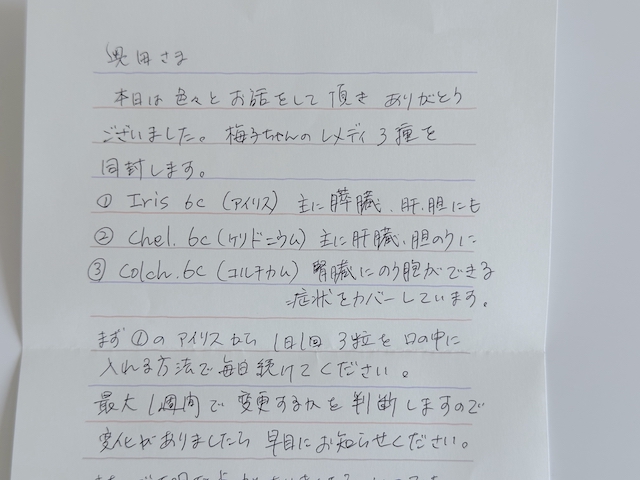 奥田さま
本日は色々とお話をして頂き ありがとう
ございました。梅子ちゃんのレメディ3種を
同封します。
① Iris 6c (アイリス) 主に膵臓、肝、胆にも
② Chel. 6c (ケリドニウム) 主に肝臓、胆のうに
③ Colch. 6c (コルチカム) 腎臓にのう胞ができる
症状をカバーしています。
まず①のアイリスから 1日1回 3粒を 口の中に
入れる方法で毎日続けてください。
最大1週間で 変更するかを判断しますので
変化がありましたら 早目にお知らせください。